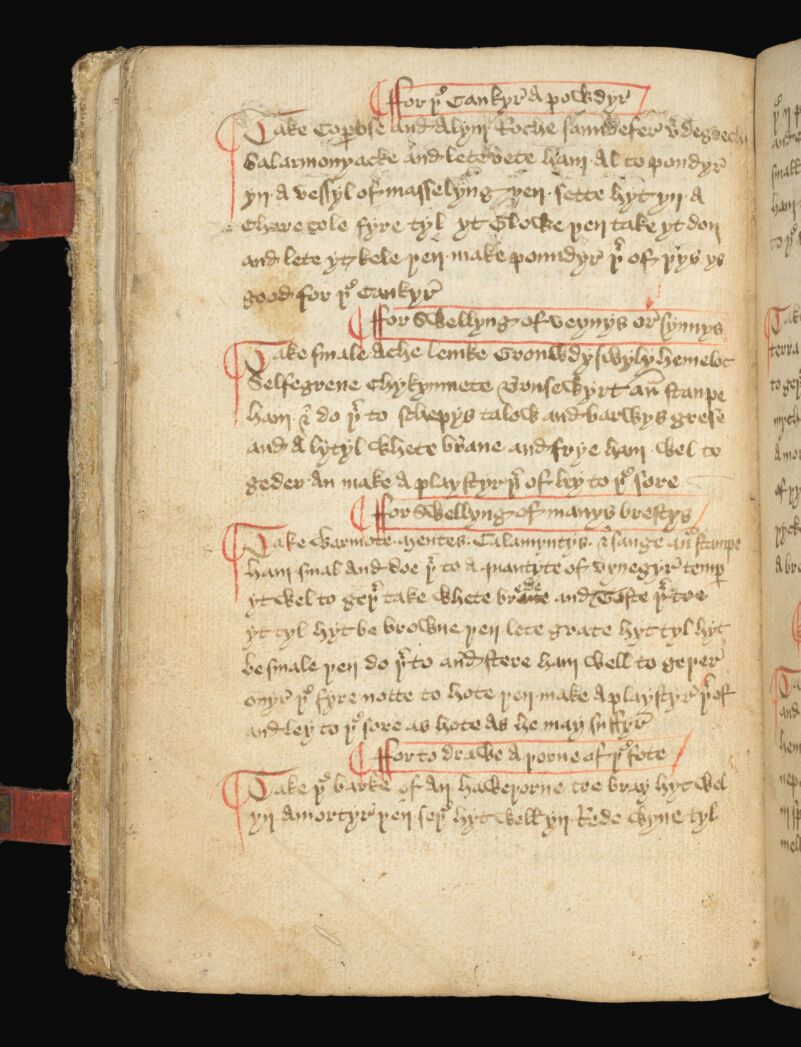 ffor þe Cankyr A powdyr
Take Coperose and Alym Roche sawndefer vedegrech
Balarmonyacke and lete bete ham Al to powdyr
yn A vessyl of masselyng þen sette hyt yn A
Charecole fyre tyl yt Glowe þen take yt don
and lete yt kele þen make poundyr þer of þys ys
good for þe Cankyr
ffor Swellyng of veynys or synnys
Take smale Ache lemke Gronwdyswyly hemeloc
Selfegrene Chykynmete and stanpe
ham & do þer to schepys talow and barwys grese
and A lytyl Whete brane and frye ham wel to
geder An make A playstyr þer of ley to þe sore
ffor Swellyng of manys brestys
Take Warmote Mentes Calamyntys & sauge and stanpe
ham smal and doe þer to A quantyte of vynegyr temper
yt wel to geþer take Whete and Toste þer toe
yt tyl hyt be browne þen lete grate hyt tyl hyt
be smale þen do þer to and stere ham well to geþer
ouyr þe fyre notte to hote þen make A playstyr þer of
and ley to þe sore as hote As he may suffyr
ffor to drawe A þorne of þe fote
Take þe barke of An haweþorne toe bray hyt Wel
yn A mortyr þen seþe hyt Well yn Rede Wyne tyl